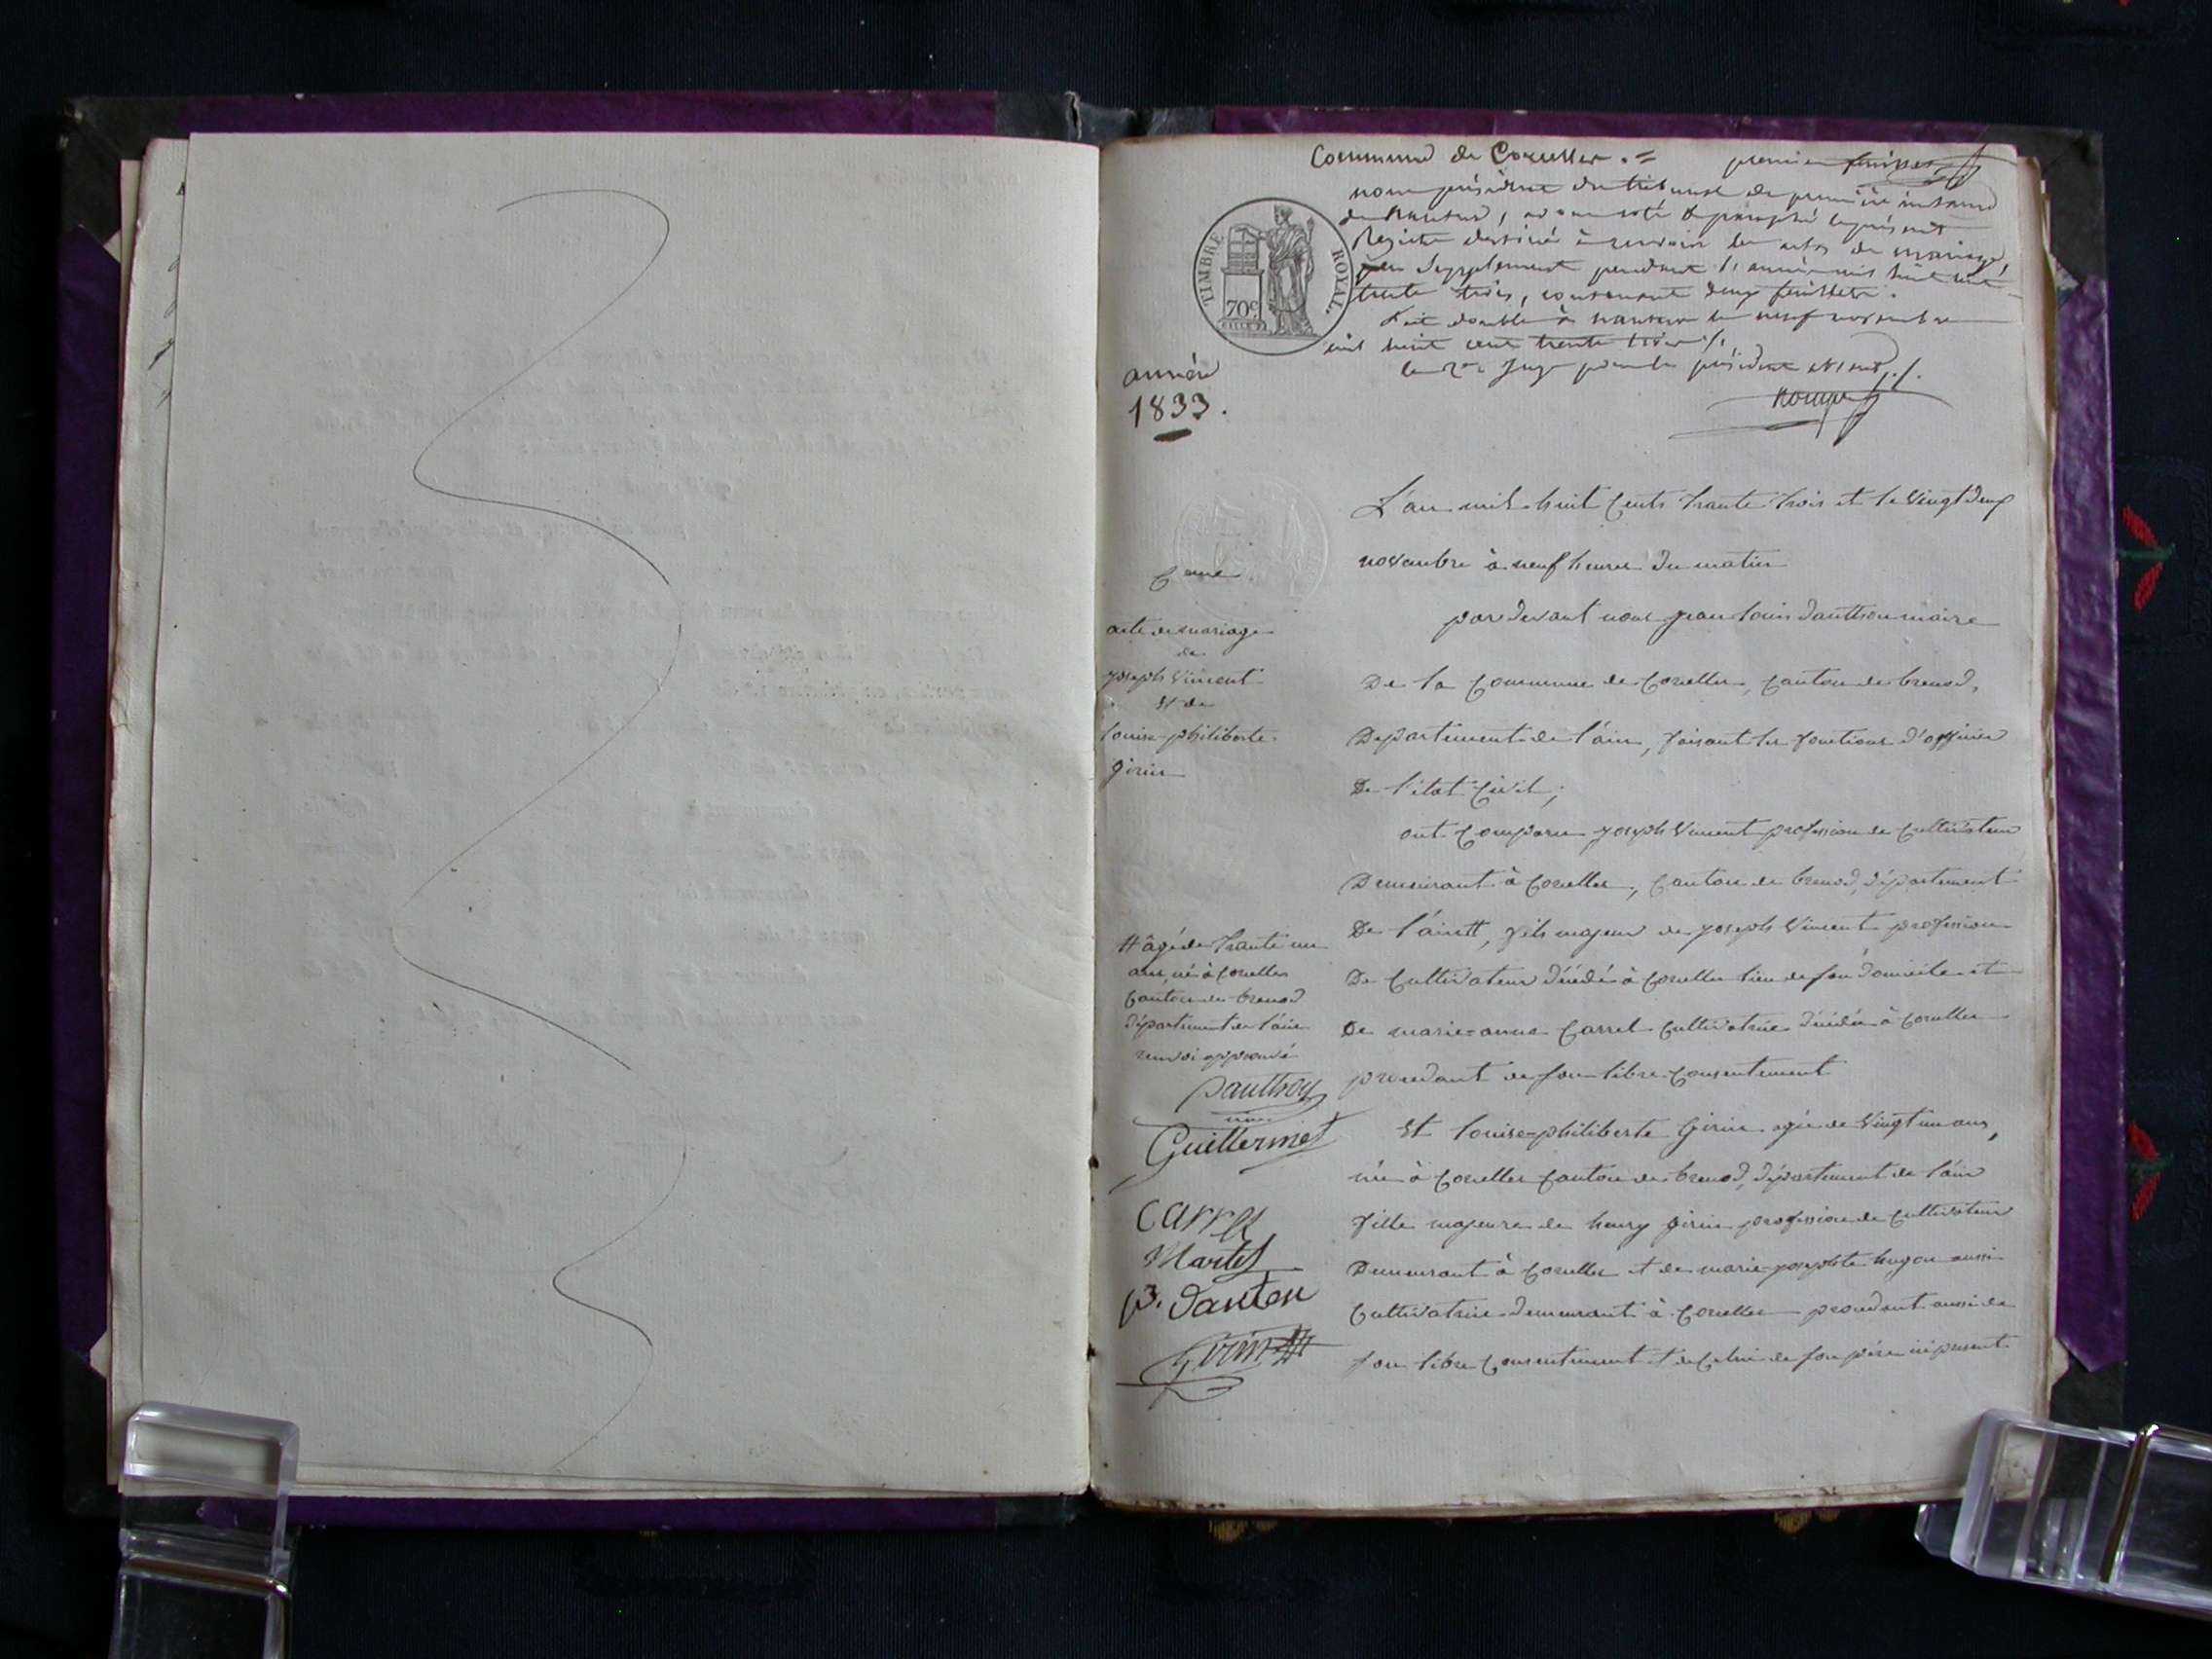 Commune de Corcelles .=
premier feuillet
nous président du tribunal de première instance
de Nantua, avons coté & paraphé le présent
Registre destiné à recevoir les actes de mariage,
par supplément pendant l'année mil huit cent
trente trois, contenant deux feuillets.
Fait double à Nantua le neuf novembre
mil huit cent trente trois ./.
le Juge pour le président
TIMBRE ROYAL
70c
année
1833.
L'an mil huit Cents trante trois et le Vingt deux
novembre à neuf heures du matin
par devant nous jean louis dauthon maire
De la Commune de Corcelles, Canton de brenod,
Departement de l'ain, faisant les fonctions d'officier
De l'état Civil;
ont Comparu joseph Vincent profession de Cultivateur
Demeurant à Corcelles, Canton de brenod, département
De l'ain #, fils majeur de joseph Vincent profession
De Cultivateur décédé à Corcelles lieu de son domicile et
De marie-anne Carrel Cultivatrice décédée à Corcelles
procedant de son libre Consentement
Et louise-philiberte Girin agée de Vingt un ans,
née à Corcelles Canton de brenod, département de l'ain
fille majeure de henry girin profession de Cultivateur
Demeurant à Corcelles et de marie josephte hugon aussi
Cultivatrice demeurant à Corcelles procedant aussi de
son libre Consentement et de Celui de son père ici présent
acte de mariage
de
joseph Vincent
et de
louise-philiberte
girin
# âgé de trante un
ans, né à Corcelles
Canton de brenod
département de l'ain
renvoi approuvé
Dauthon
Guillermet
Carrel
Martel
B. Danton
Girin